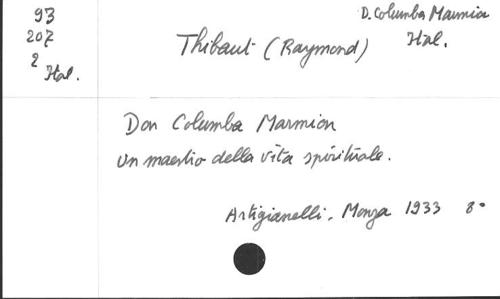 93
207
2
Ital.
D. Columba Marmion
Ital.
Thibaut (Raymond)
Don Columba Marmion
un maestro della vita spirituale.
Artigianelli, Monza 1933 8°